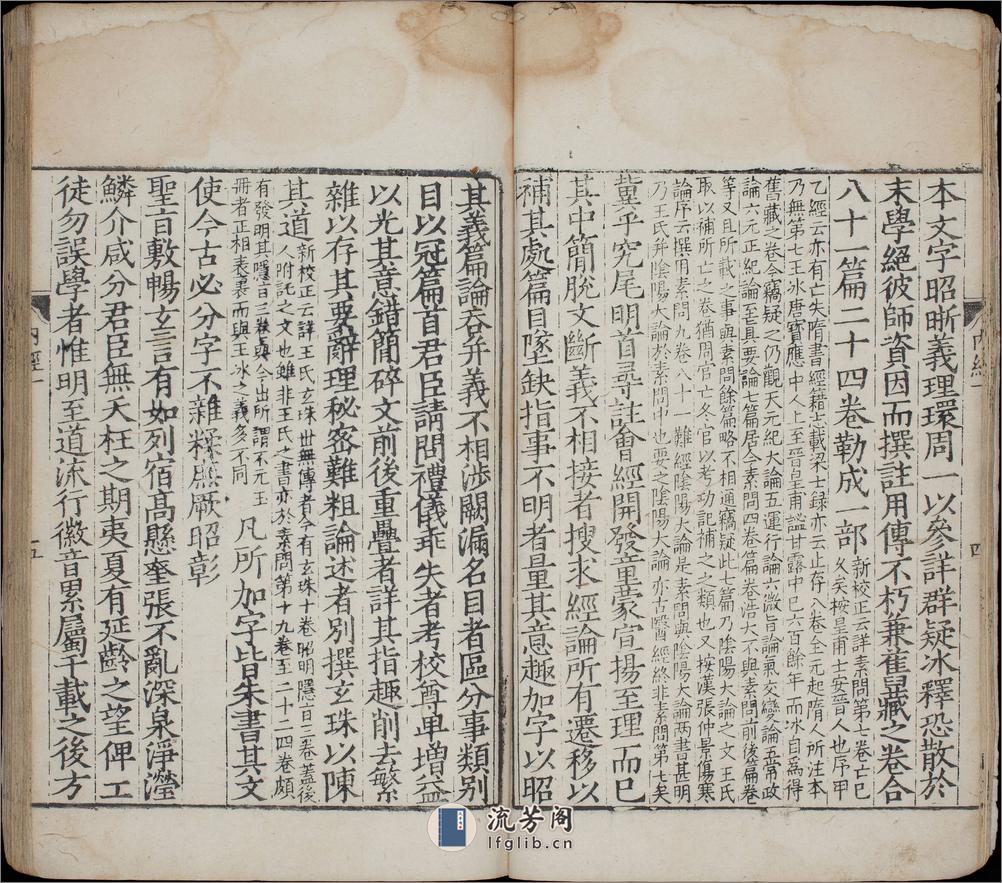 本文字昭晰義理環周一以參詳群疑冰釋恐散於
末學絕彼師資因而撰註用傳不朽兼舊藏之卷合
八十一篇二十四卷勒成一部
新校正云詳素問第七卷亡已
久矣按皇甫士安晉人也序甲
乙經云亦有亡失隋書經籍志載梁七錄亦云止存八卷全元起隋人所注本
乃無第七王冰唐寶應中人上至晉皇甫謐甘露中已六百餘年而冰自爲得
舊藏之卷今竊疑之仍觀天元紀大論五運行論六微旨論氣交變論五常政
論六元正紀論至真要論七篇居今素問四卷篇卷浩大不與素問前後篇卷
等又且所載之事與素問餘篇略不相通竊疑此七篇乃陰陽大論之文王氏
取以補所亡之卷猶周官亡冬官以考功記補之之類也又按漢張仲景傷寒
論序云撰用素問九卷八十一難經陰陽大論是素問與陰陽大論兩書甚明
乃王氏并陰陽大論於素問中也要之陰陽大論亦古醫經終非素問第七矣
冀乎究尾明首尋註會經開發童蒙宣揚至理而已
其中簡脫文斷義不相接者搜求經論所有遷移以
補其處篇目墜缺指事不明者量其意趣加字以昭
四
其義篇論吞并義不相涉闕漏名目者區分事類別
目以冠篇首君臣請問禮儀乖失者考校尊卑增益
以光其意錯簡碎文前後重疊者詳其指趣削去繁
雜以存其要辭理秘密難粗論述者別撰玄珠以陳
其道
新校正云詳王氏玄珠世無傳者今有玄珠十卷昭明隱旨三卷蓋後
人附託之文也雖非王氏之書亦於素問第十九卷至二十四卷頗
有發明其隱旨三卷與今世所謂天元玉
冊者正相表裏而與王冰之義多不同
凡所加字皆朱書其文
使今古必分字不雜糅庶厥昭彰
聖旨敷暢玄言有如列宿高懸奎張不亂深泉淨瀅
鱗介咸分君臣無夭枉之期夷夏有延齡之望俾工
徒勿誤學者惟明至道流行徽音累屬千載之後方
內經一
五
流芳阁
lfglib.cn